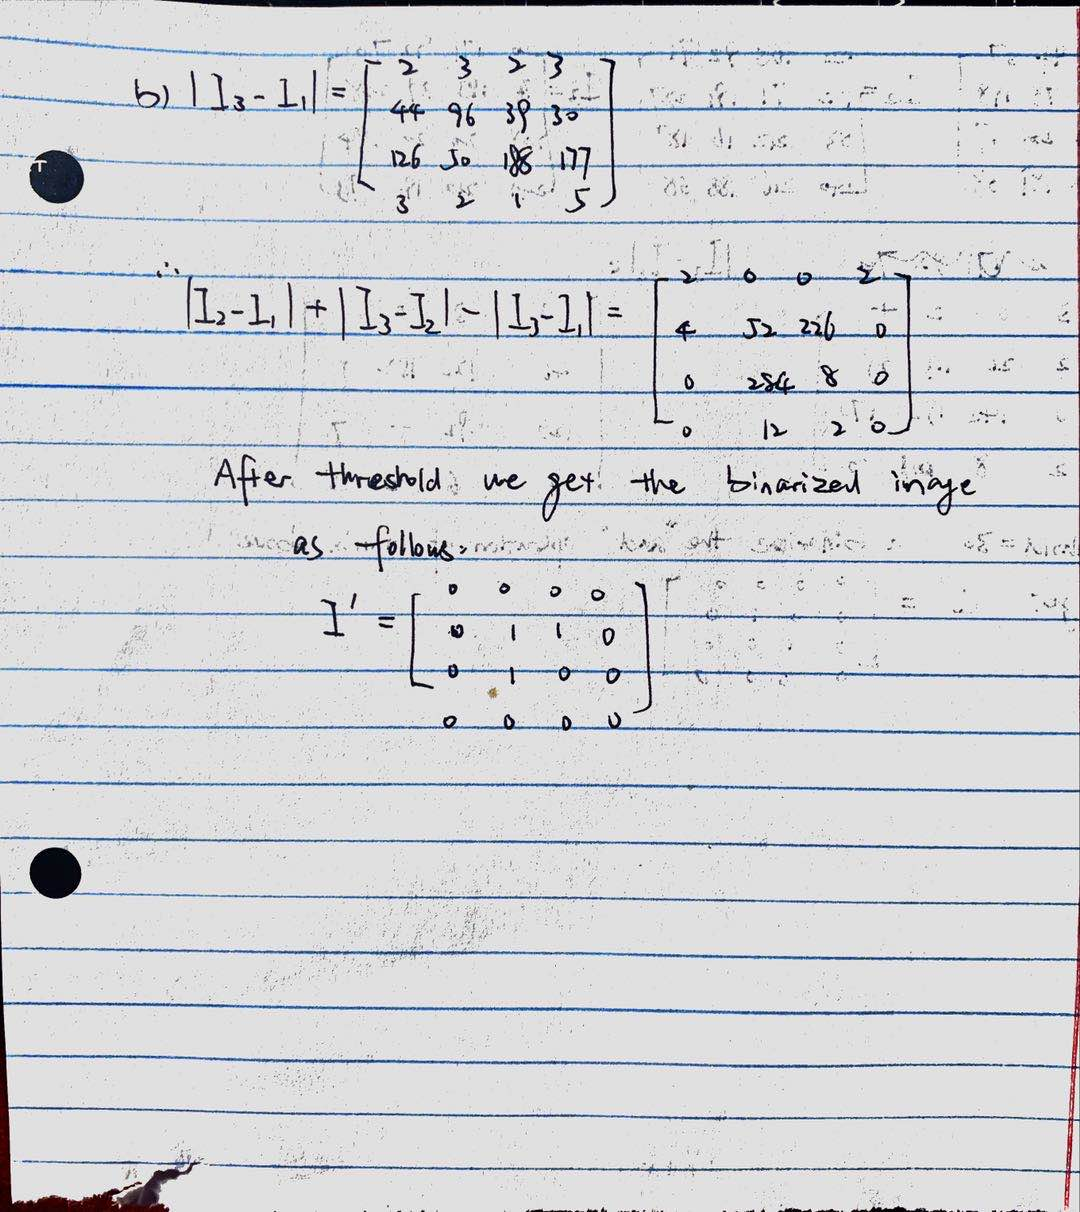 b) |I₃-I₁| = [ 2 3 2 3
44 96 39 30
126 50 188 177
3 2 1 5 ]
∴
|I₂-I₁| + |I₃-I₂| - |I₃-I₁| = [ 2 0 0 2
4 52 226 0
0 284 8 0
0 12 2 0 ]
After threshold we get the binarized image
as follows.
I' = [ 0 0 0 0
0 1 1 0
0 1 0 0
0 0 0 0 ]